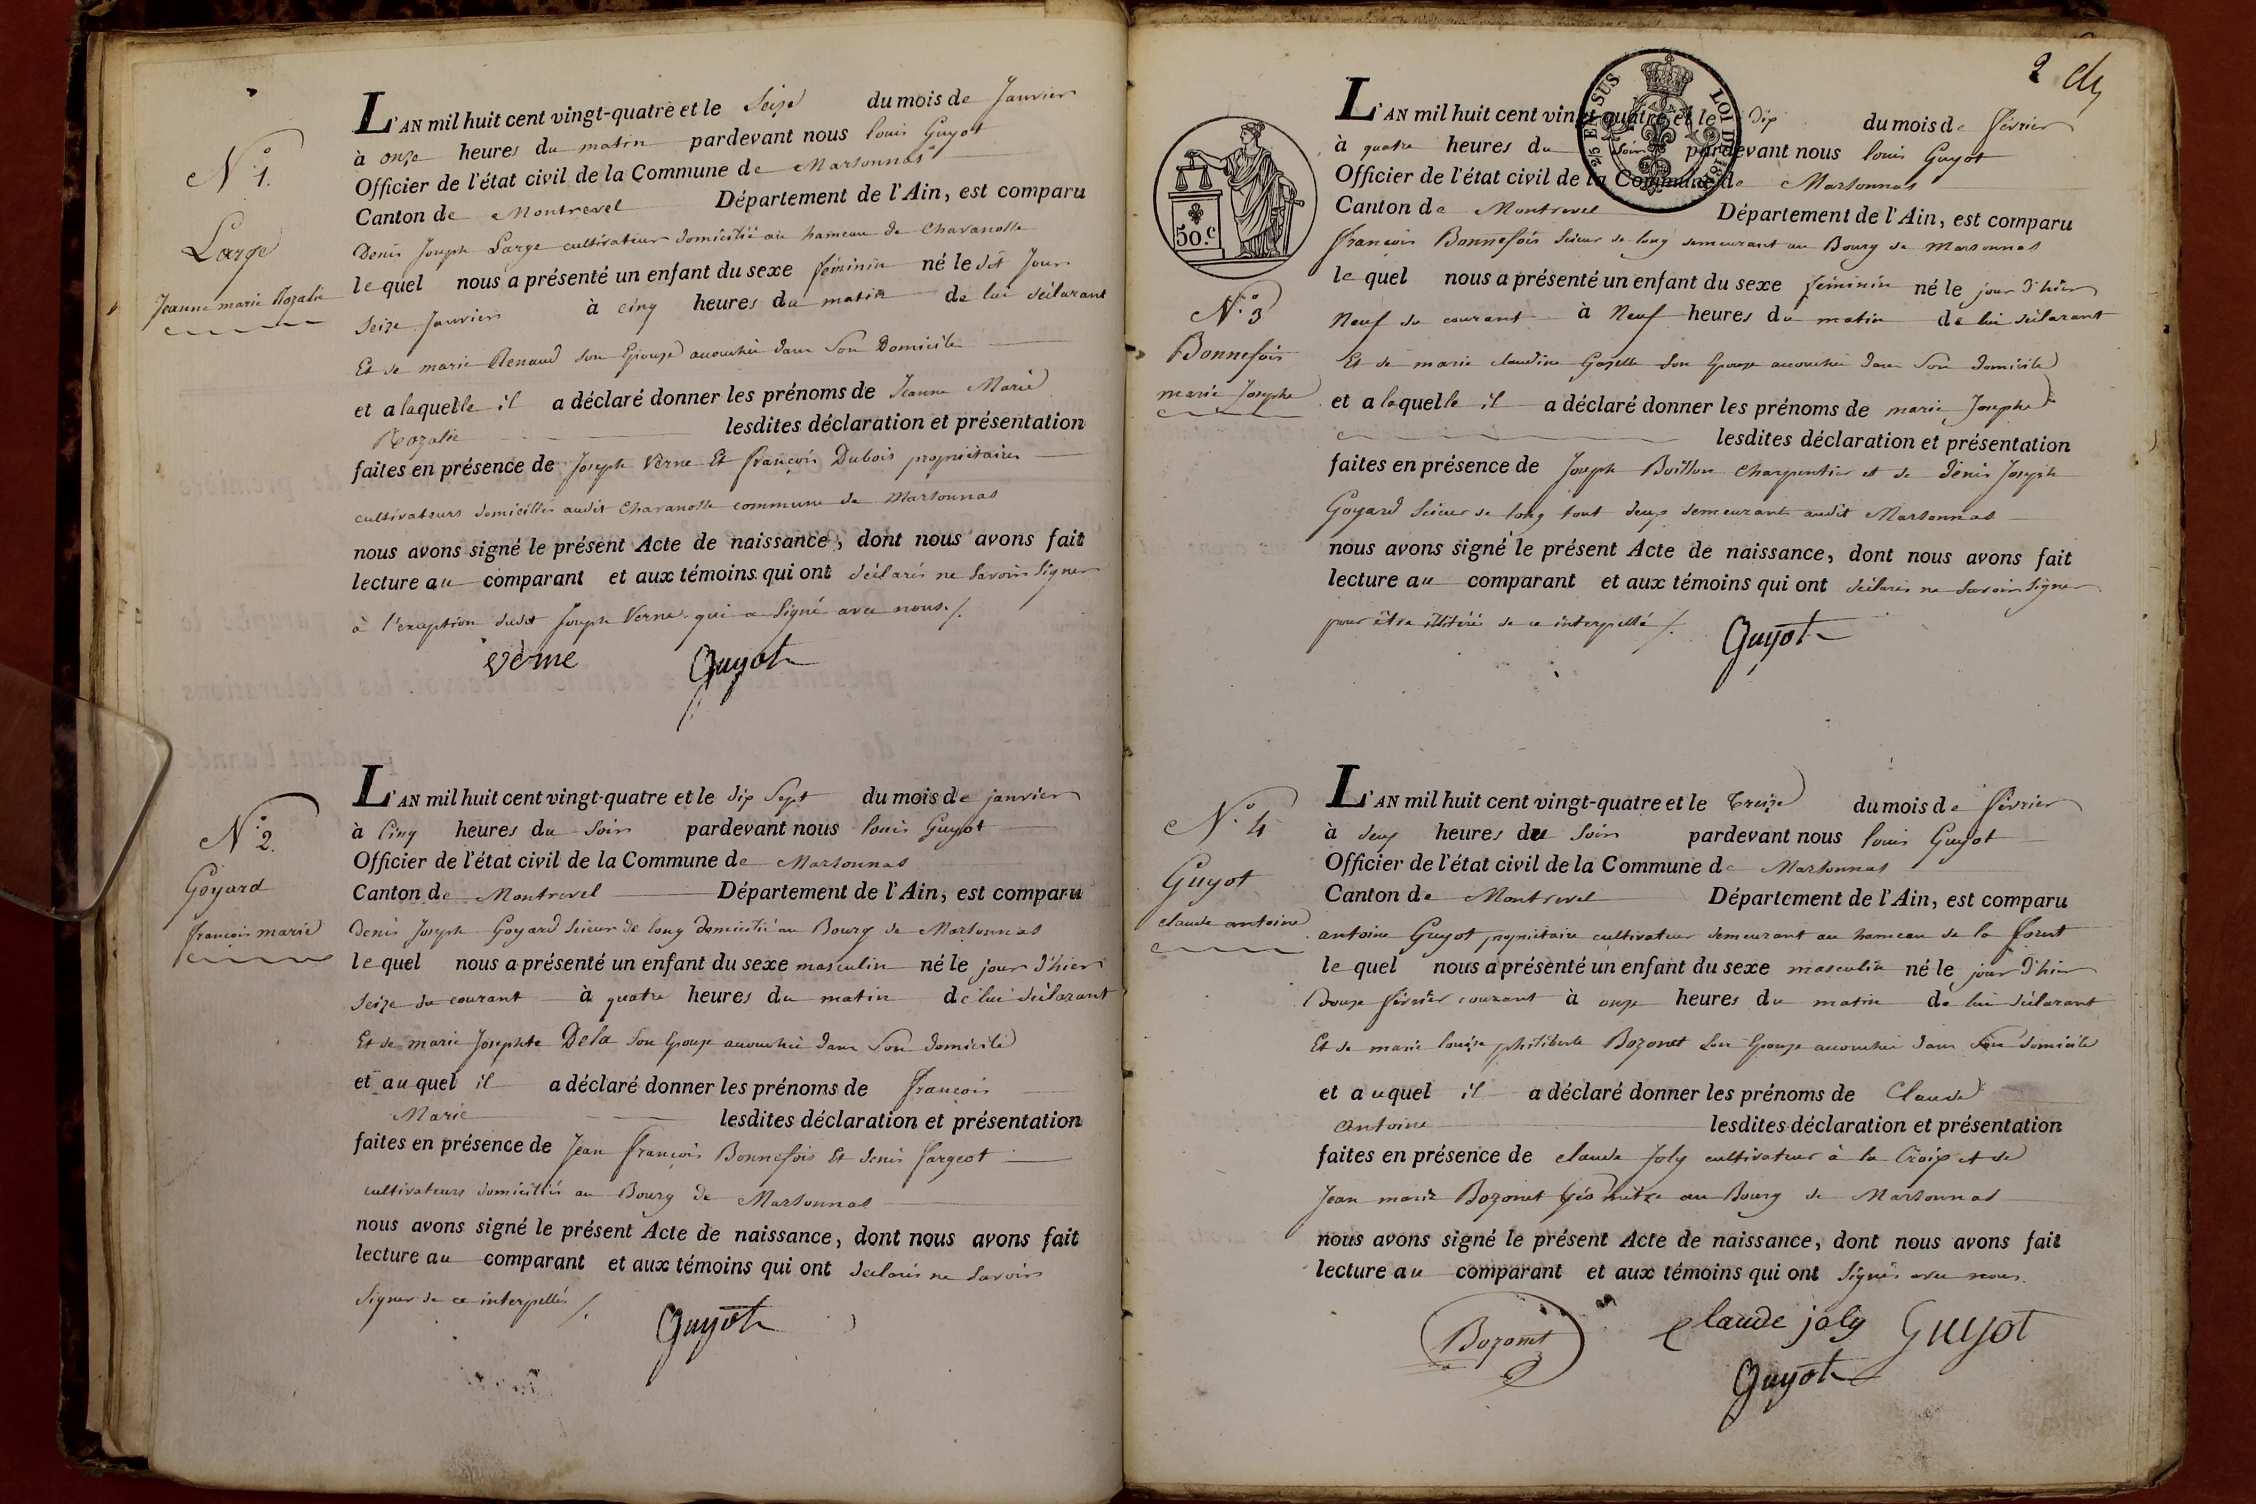 N.º 1.
Large
Jeanne marie Rozalie
L'AN mil huit cent vingt-quatre et le Seize du mois de Janvier
à onze heures du matin pardevant nous louis Guyot
Officier de l'état civil de la Commune de Marsonnas
Canton de Montrevel Département de l'Ain, est comparu
Denis Joseph Large cultivateur domicilié au hameau de Chavanosse
le quel nous a présenté un enfant du sexe féminin né le dit Jour
Seize Janvier à cinq heures du matin de lui déclarant
Et de marie Renaud son Epouse accouchée dans Son Domicile
et a laquelle il a déclaré donner les prénoms de Jeanne Marie
Rozalie lesdites déclaration et présentation
faites en présence de Joseph Verne Et françois Dubois propriétaires
cultivateurs domiciliés audit Chavanosse commune de Marsonnas
nous avons signé le présent Acte de naissance, dont nous avons fait
lecture au comparant et aux témoins qui ont déclarés ne Savoir Signer
à l'exception dudit Joseph Verne qui a Signé avec nous ./.
verne Guyot
N.º 2.
Goyard
françois marie
L'AN mil huit cent vingt-quatre et le dix Sept du mois de janvier
à Cinq heures du Soir pardevant nous louis Guyot
Officier de l'état civil de la Commune de Marsonnas
Canton de Montrevel Département de l'Ain, est comparu
Denis Joseph Goyard Scieur de long domicilié au Bourg de Marsonnas
le quel nous a présenté un enfant du sexe masculin né le jour d'hier
Seize du courant à quatre heures du matin de lui déclarant
Et de marie Josephte Dela Son Epouse accouchée dans Son domicile
et au quel il a déclaré donner les prénoms de françois
Marie lesdites déclaration et présentation
faites en présence de Jean françois Bonnefois Et denis fargeot
cultivateurs domiciliés au Bourg de Marsonnas
nous avons signé le présent Acte de naissance, dont nous avons fait
lecture au comparant et aux témoins qui ont déclarés ne Savoir
Signer de ce interpellés ./.
Guyot
2
25 EN SUS LOI DE
50.c
N.º 3
Bonnefois
marie Josephe
L'AN mil huit cent vingt-quatre et le dix du mois de février
à quatre heures du Soir pardevant nous louis Guyot
Officier de l'état civil de la Commune de Marsonnas
Canton de Montrevel Département de l'Ain, est comparu
françois Bonnefois Scieur de long demeurant au Bourg de Marsonnas
le quel nous a présenté un enfant du sexe féminin né le jour d'hier
Neuf du courant à Neuf heures du matin de lui déclarant
Et de marie claudine Gozelle Son Epouse accouchée dans Son domicile
et a laquelle il a déclaré donner les prénoms de marie Josephe
lesdites déclaration et présentation
faites en présence de Joseph Boisson Charpentier et de denis Joseph
Goyard Scieur de long tout deux demeurant audit Marsonnas
nous avons signé le présent Acte de naissance, dont nous avons fait
lecture au comparant et aux témoins qui ont déclarés ne Savoir Signer
pour être illitérés de ce interpellé ./.
Guyot
N.º 4
Guyot
claude antoine
L'AN mil huit cent vingt-quatre et le Treize du mois de février
à deux heures du Soir pardevant nous louis Guyot
Officier de l'état civil de la Commune de Marsonnas
Canton de Montrevel Département de l'Ain, est comparu
antoine Guyot propriétaire cultivateur demeurant au hameau de la forêt
le quel nous a présenté un enfant du sexe masculin né le jour d'hier
Douze février courant à onze heures du matin de lui déclarant
Et de marie louise philiberte Bozonet Son Epouse accouchée dans Son domicile
et auquel il a déclaré donner les prénoms de Claude
antoine lesdites déclaration et présentation
faites en présence de claude Joly cultivateur à la Croix et de
Jean marie Bozonet Géomètre au Bourg de Marsonnas
nous avons signé le présent Acte de naissance, dont nous avons fait
lecture au comparant et aux témoins qui ont Signés avec nous.
Bozonet claude joly Guyot
Guyot